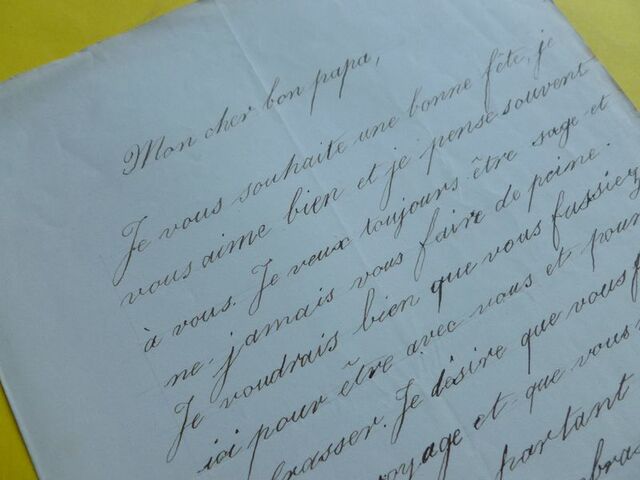 Mon cher bon papa,
Je vous souhaite une bonne fête, je
vous aime bien et je pense souvent
à vous. Je veux toujours être sage et
ne jamais vous faire de peine.
Je voudrais bien que vous fussiez
ici pour être avec nous et pour
brasser. Je désire que vous f
oyage et que vous
partant
bras